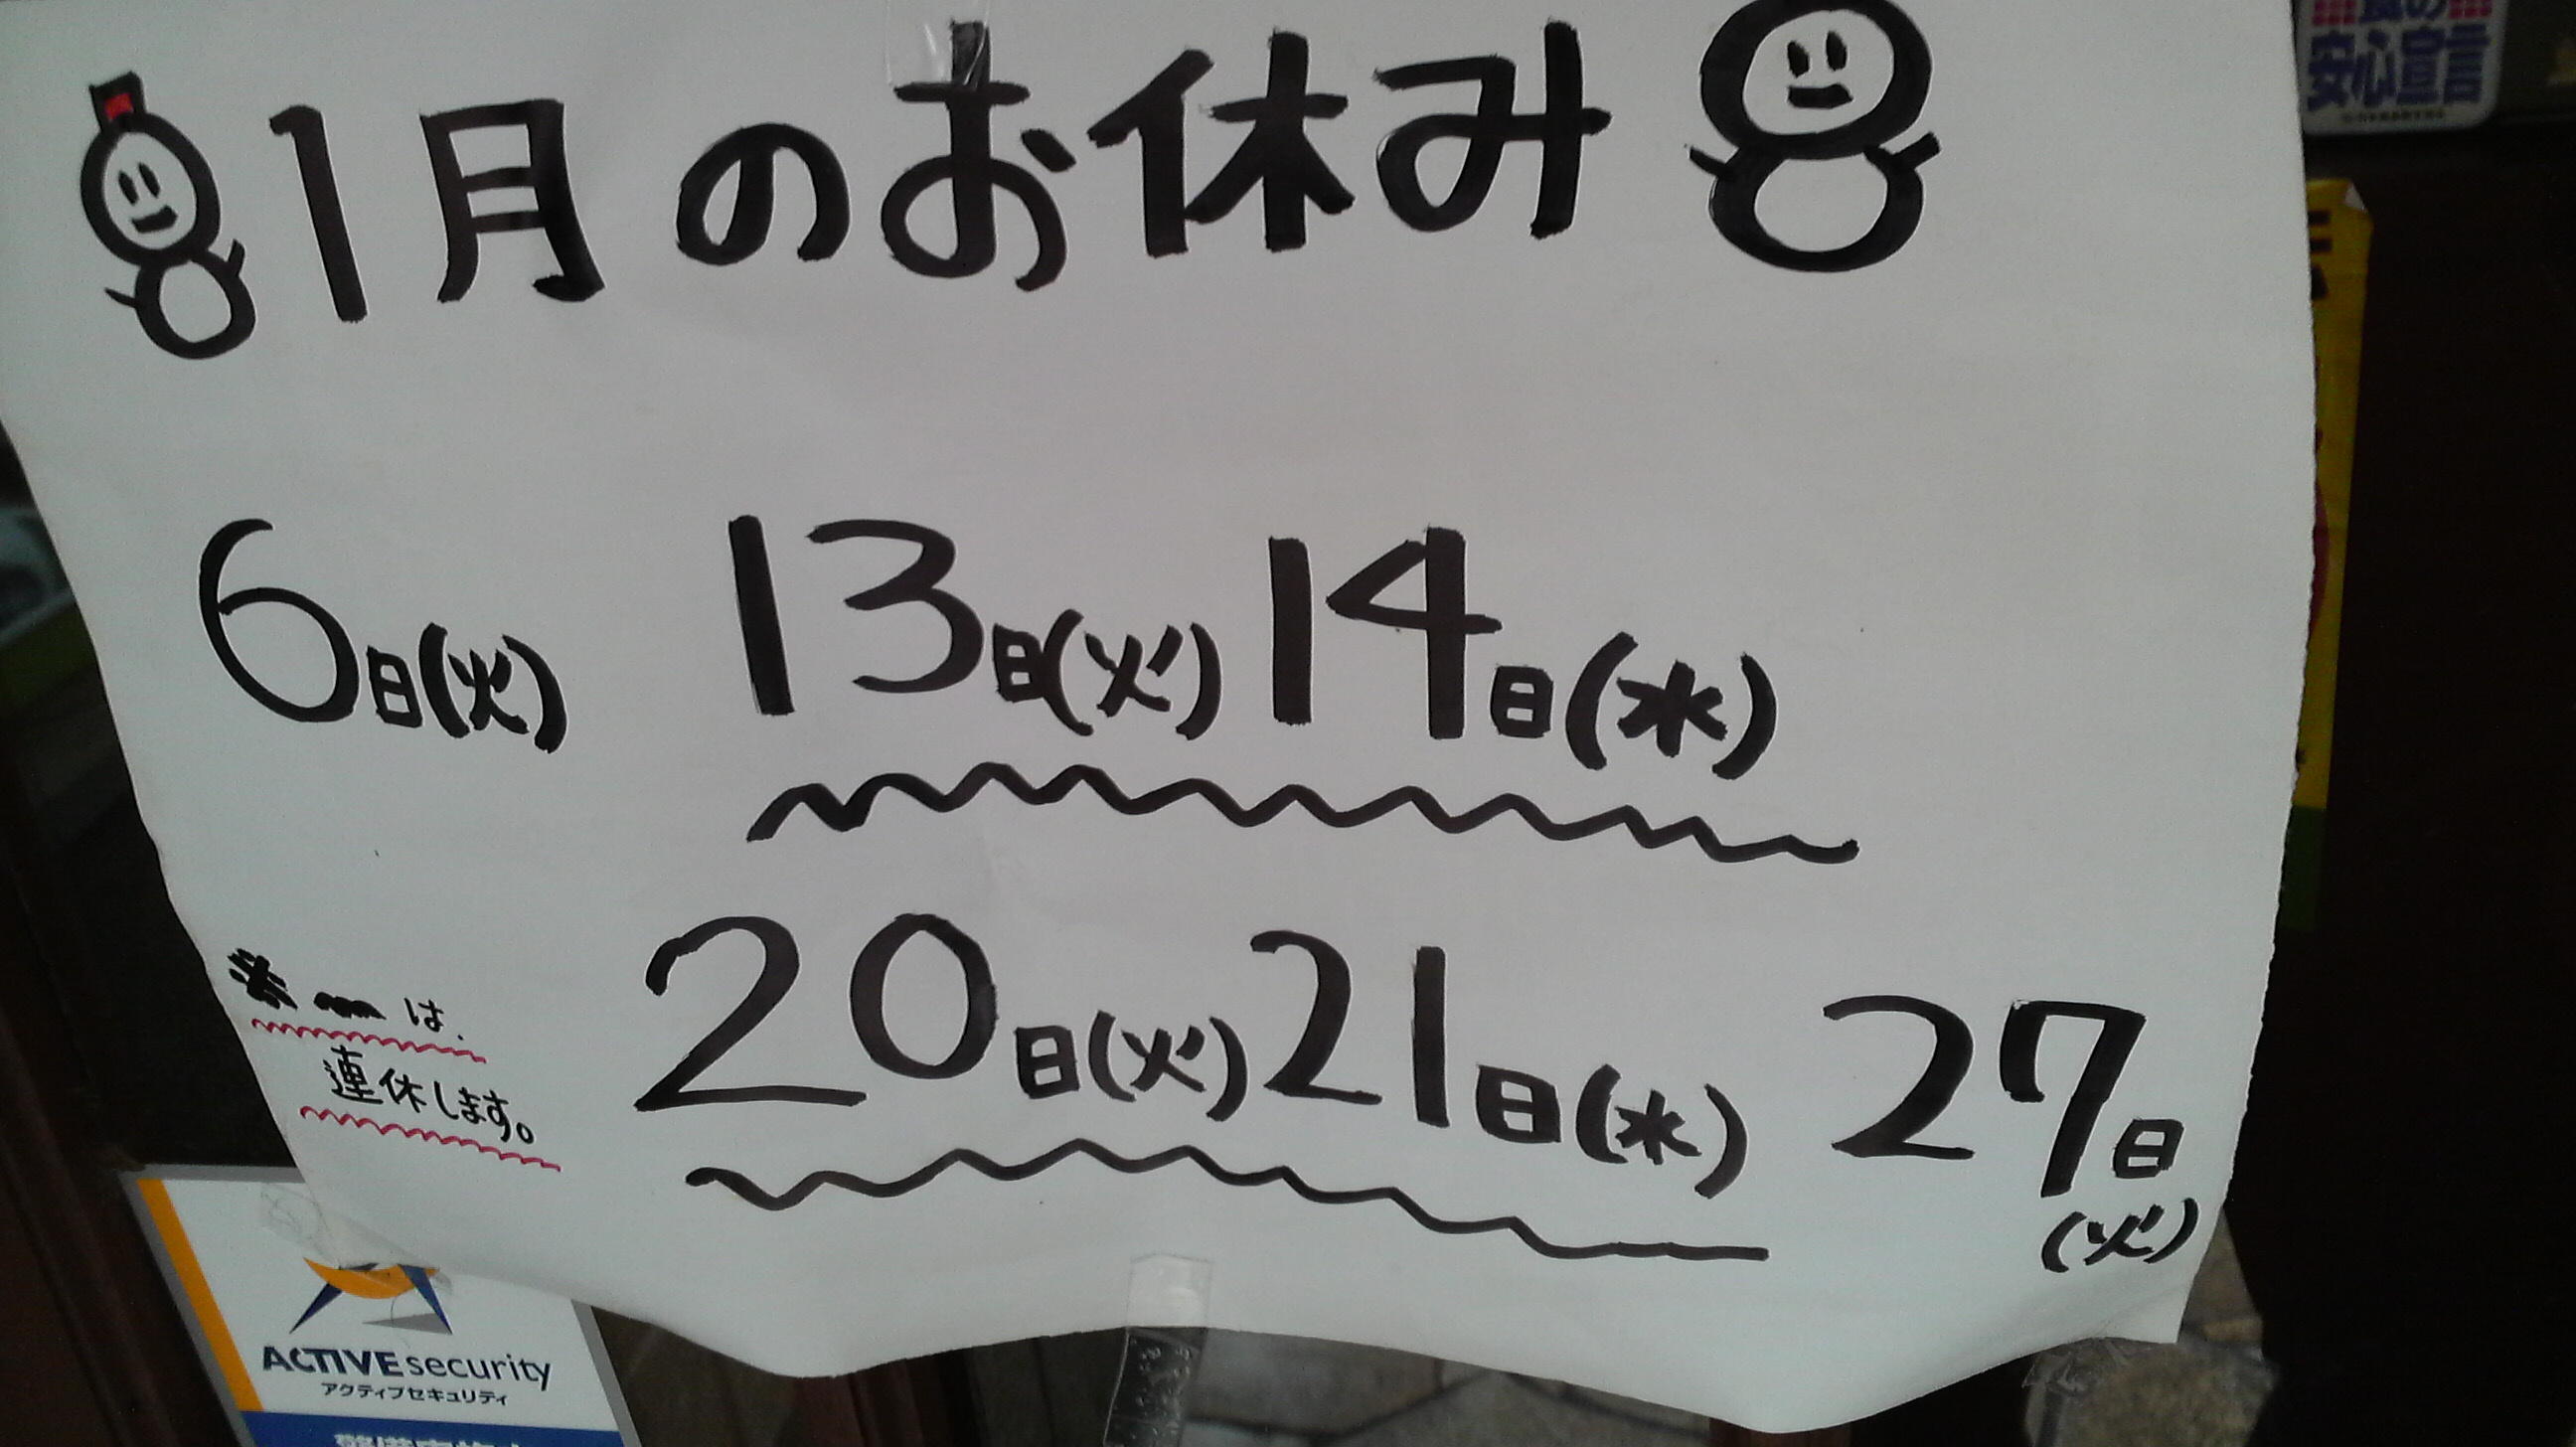 1月のお休み
6日(火) 13日(火) 14日(水)
20日(火) 21日(水) 27日
(火)
※〰は、
連休します。
安心宣言
ACTIVEsecurity
アクティブセキュリティ